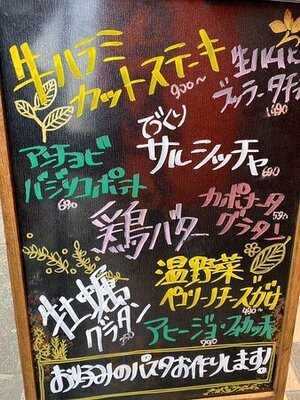 牛ハラミ
カットステーキ
900〜
生ハムと
ブッラータチーズ
1490
アンチョビ
バジリコポテト
690
てづくり
サルシッチャ
690
カポナータ
グラタン
590
鶏バター
牡蠣
グラタン
温野菜
ペコリーノチーズがけ
490〜
アヒージョ・フォカッチャ
990
お好みのパスタお作りします!